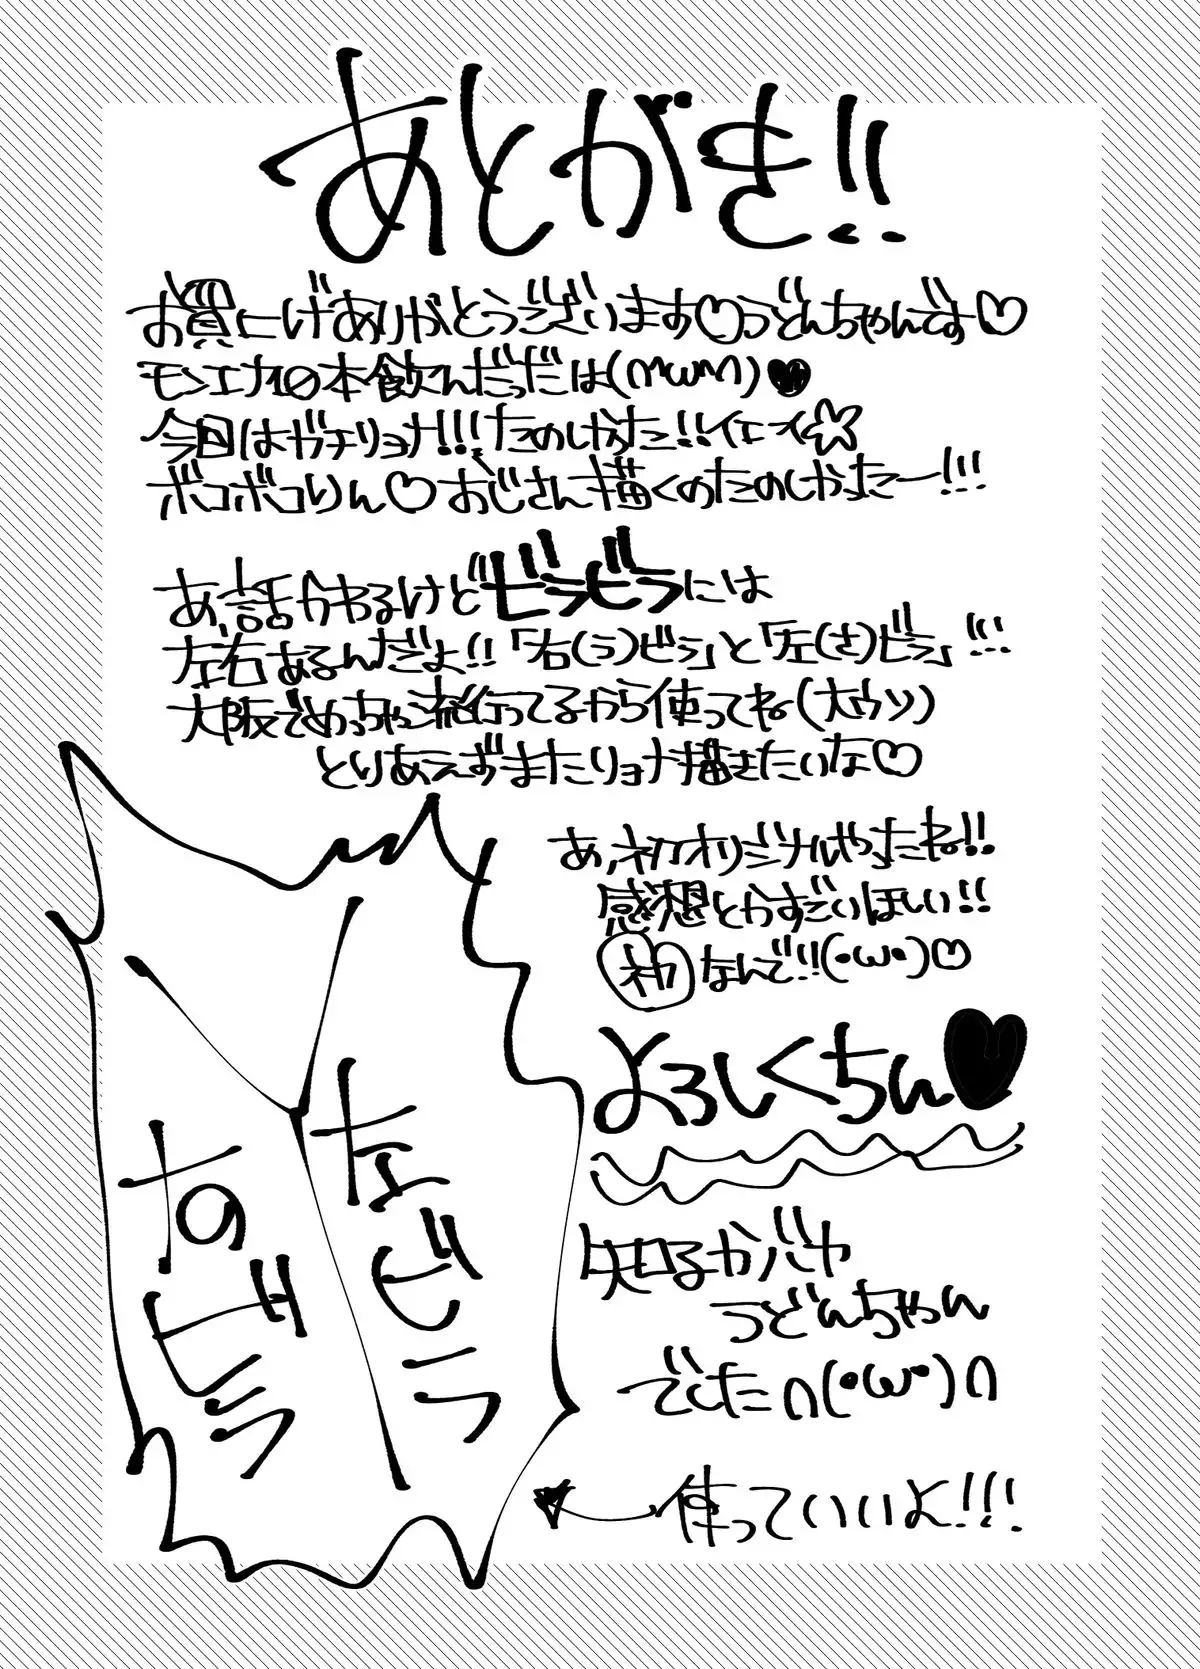 あとがき!!
お買にげありがとうございます♡うどんちゃんです♡
モンエナ10本飲んだっだは(mωm)♥
今回はガチリョナ!!!たのしかった!!イェーイ☆
ボコボコりん♡おじさん描くのたのしかったー!!!
あ、話かわるけどビラビラには
左右あるんだよ!!「右(う)ビラ」と「左(さ)ビラ」!!!
大阪でめっちゃ流行ってるから使ってね(大ウソ)
とりあえずまたリョナ描きたいな♡
あ、初オリジナルやったね!!
感想とかすごいほしい!!
初なんで!!(・ω・)♡
よろしくちん♥
知るかバや
うどんちゃん
でした∩(・ω・)∩
使っていいよ!!!